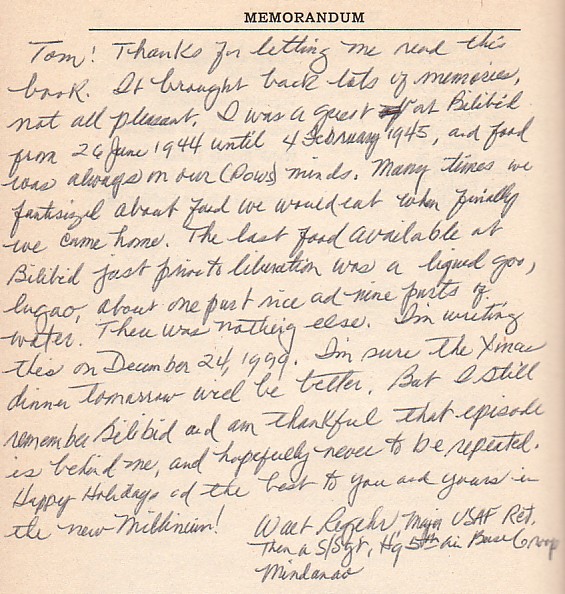 MEMORANDUM
Tom! Thanks for letting me read this
book. It brought back lots of memories,
not all pleasant. I was a guest at Bilibid
from 26 June 1944 until 4 February 1945, and food
was always on our (POWs) minds. Many times we
fantisized about food we would eat when finially
we came home. The last food available at
Bilibid just prior to liberation was a liqued goo,
lugao, about one part rice ad nine parts of
water. There was nothing else. I'm writing
this on December 24, 1999. I'm sure the Xmas
dinner tomorrow will be better. But I still
remember Bilibid and am thankful that episode
is behind me, and hopefully never to be repeated.
Happy Holidays ad the best to you and yours in
the new Millinium!
Walt Regehr, Major USAF Ret.
Then a S/Sgt, Hq 5th Air Base Group
Mindanao